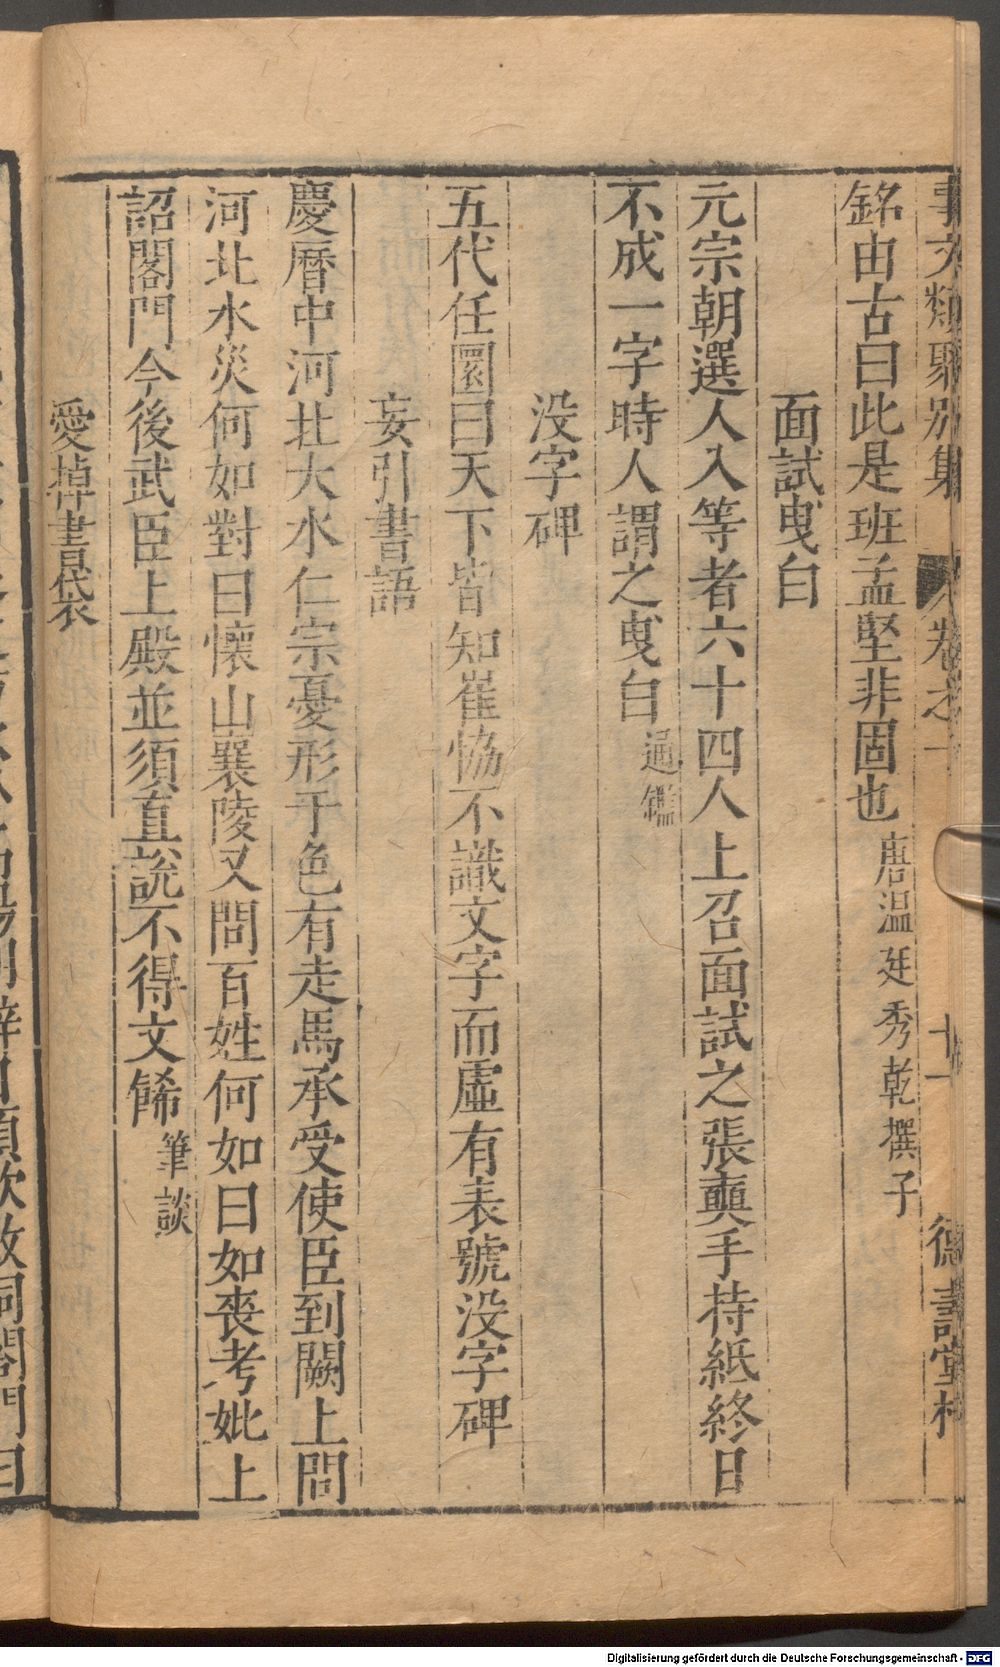 事文類聚别集 卷之一 十一 德壽堂梓
銘由古曰此是班孟堅非固也唐温廷秀乾𦠆子
面試曳白
元宗朝選人入等者六十四人上召面試之張奭手持紙終日
不成一字時人謂之曳白通鑑
没字碑
五代任圜曰天下皆知崔恊不識文字而虚有表號没字碑
妄引書語
慶曆中河北大水仁宗憂形于色有走馬承受使臣到闕上問
河北水災何如對曰懷山襄陵又問百姓何如曰如喪考妣上
詔閣門今後武臣上殿並須直說不得文餙筆談
愛掉書袋
Digitalisierung gefördert durch die Deutsche Forschungsgemeinschaft - DFG